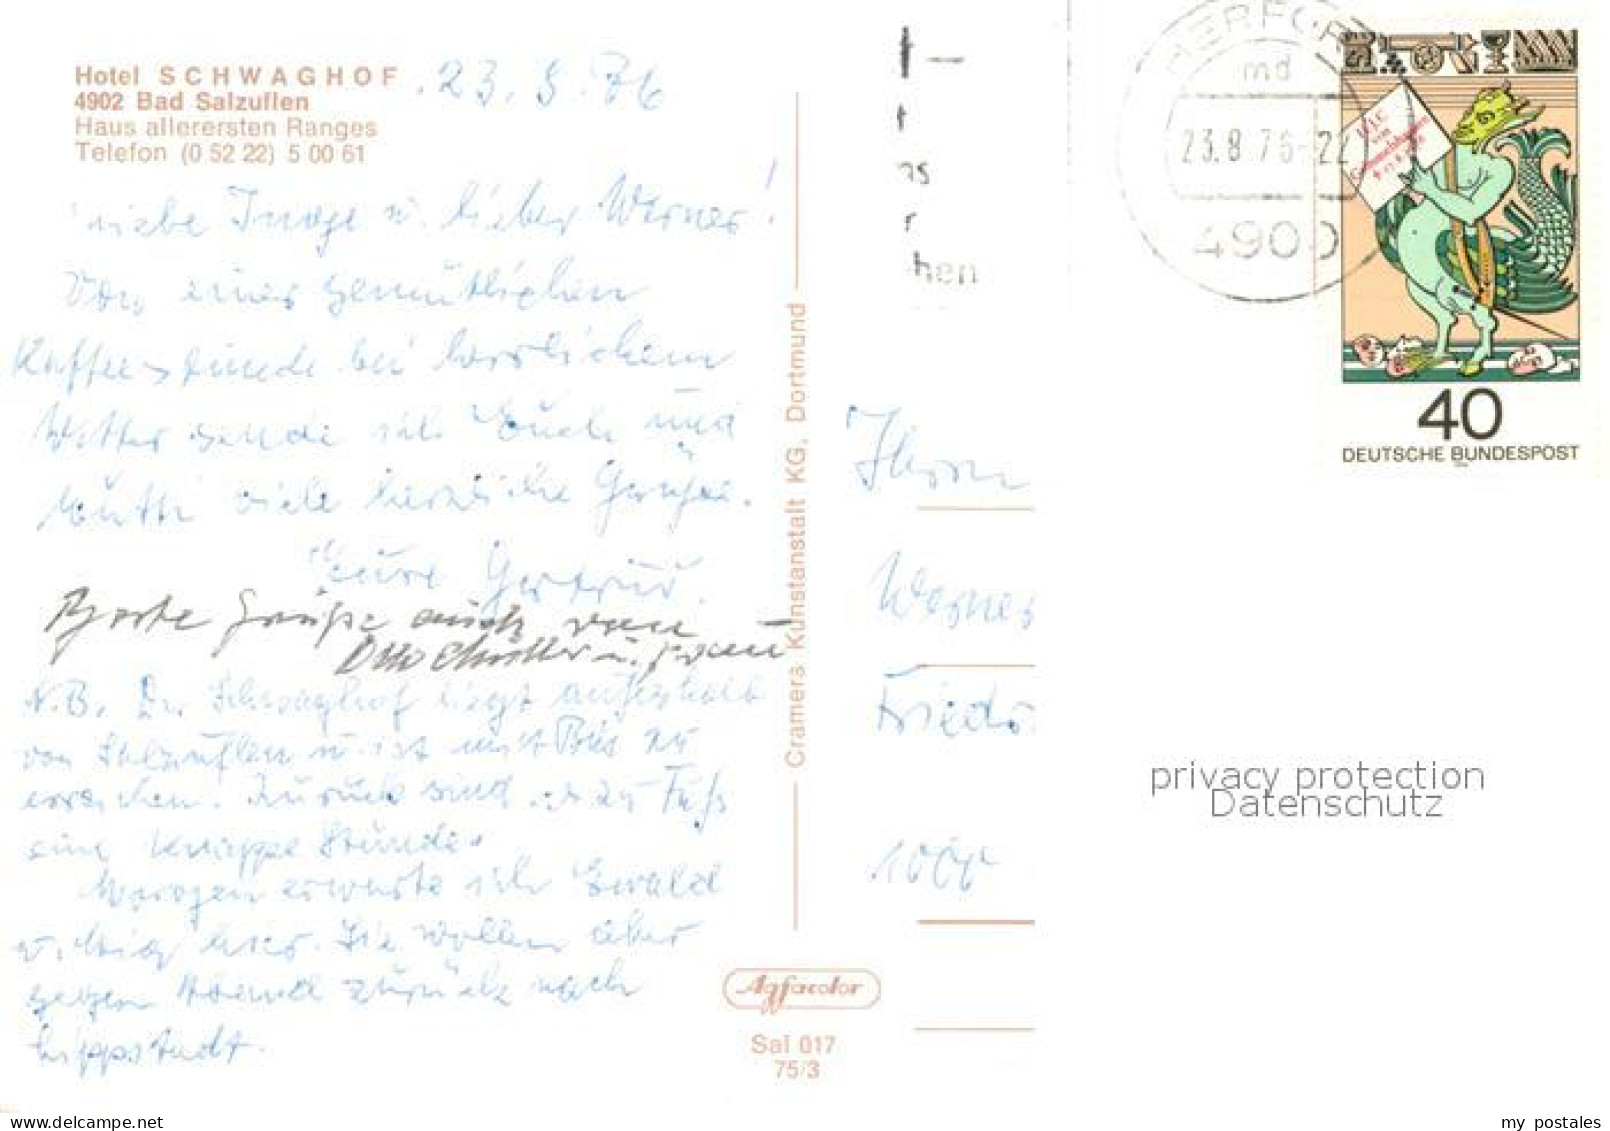 Hotel SCHWAGHOF
4902 Bad Salzuflen
Haus allerersten Ranges
Telefon (0 52 22) 5 00 61
23. 8. 76
Liebe Inge u. lieber Werner!
Von einer gemütlichen
Kaffeestunde bei herrlichem
Wetter sende ich Euch und
Mutti viele herzliche Grüße.
Eure Gertrud.
Beste Grüße auch von
Otto u. Frau
N.B. Der Schwaghof liegt außerhalb
von Salzuflen u. ist mit Bus zu
erreichen. Zurück sind es zu Fuß
eine knappe Stunde.
Morgen erwarte ich Ewald
hier. Sie wollen aber
gegen Abend zurück nach
Lippstadt.
Cramers Kunstanstalt KG, Dortmund
Agfacolor
Sal 017
75/3
hen
HERFORD
md
23.8.76-22
4900
40
DEUTSCHE BUNDESPOST
Herrn
Werner
Friedr.
privacy protection
Datenschutz
www.delcampe.net
my_postales